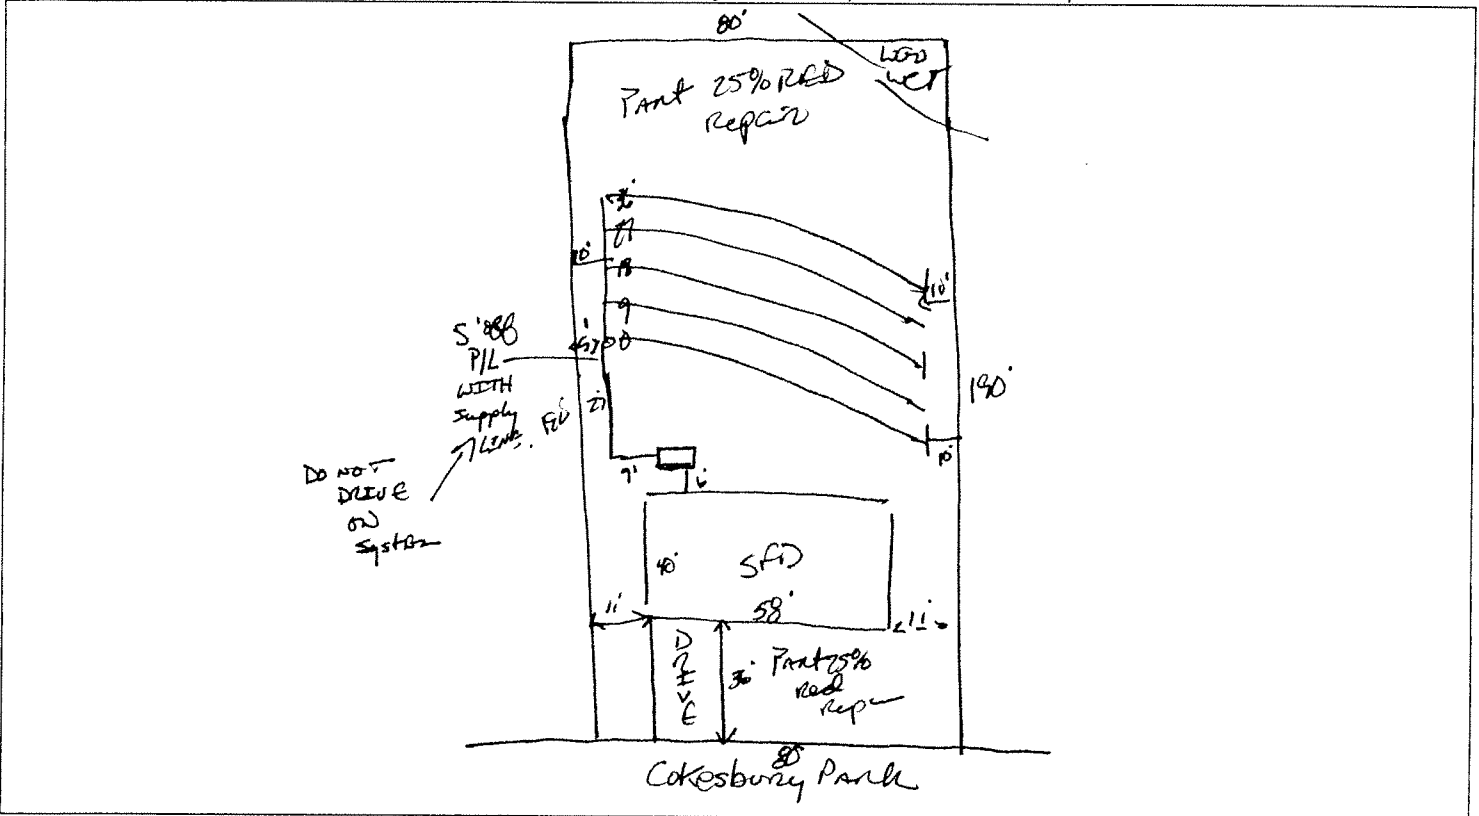 80'
WED
WET
Part 25% RED
Repair
36'
27
10'
18
10'
9
5'
0
5' off
P/L
WITH
Supply
LINE.
190'
27
10'
7'
6'
DO NOT
DRIVE
ON
System
40'
SFD
58'
11'
11'
DRIVE
30'
Part 25%
Red
Repair
80
Cokesbury Park